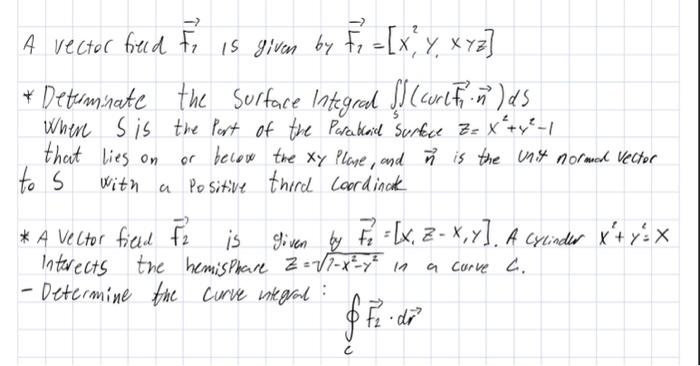 A vector field F₁→ is given by F₁→ = [x², y, xyz]
* Determinate the surface Integral ∬ₛ (curl F₁→ · n→) dS
Where S is the Part of the Paraboloid Surface z = x² + y² - 1
that lies on or below the xy Plane, and n→ is the unit normal vector
to S with a Positive third Coordinate
* A Vector field F₂→ is given by F₂→ = [x, z - x, y]. A cylinder x² + y² = x
Intersects the hemisphere z = √(1-x²-y²) in a curve C.
- Determine the curve integral :
∮ F₂→ · dr→
c